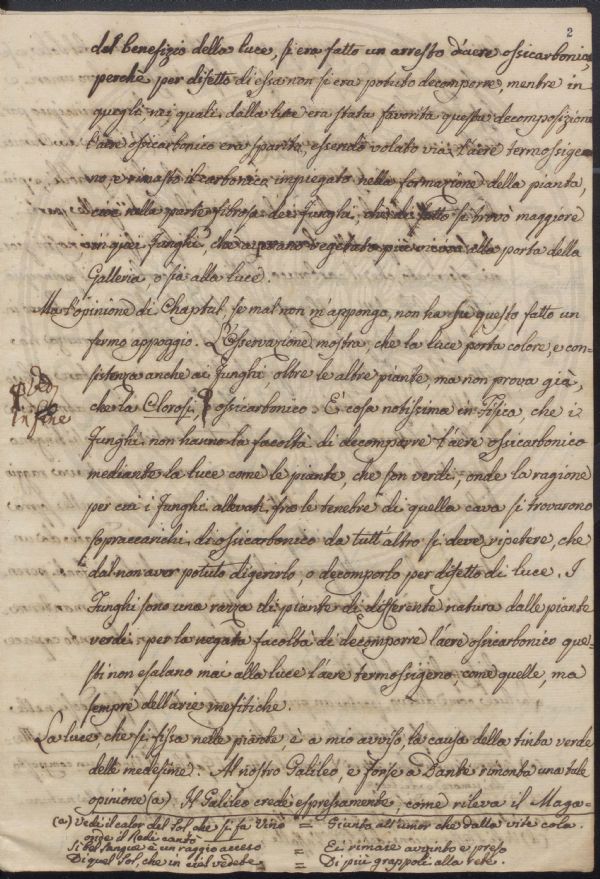 2
dal benefizio della luce, si era fatto un arresto d'aere ossicarbonico,
perchè per difetto di essa non si era potuto decomporre, mentre in
quegli nei quali dalla luce era stata favorita questa decomposizione
l'aere ossicarbonico era sparito, essendo volato via l'aere termossige-
no, e rimasto il carbonico impiegato nella formazione della pianta,
cioè nella parte fibrosa dei Funghi, che di fatto si trovò maggiore
in quei Funghi, che aveano vegetato più vicini alla porta della
Galleria, o sia alla luce.
Ma l'opinione di Chaptal, se mal non m'appongo, non ha su questo fatto un
fermo appoggio. L'Osservazione mostra, che la luce porta colore, e con-
sistenza anche ai Funghi oltre le altre piante, ma non prova già,
che la Clorosi, ossicarbonico. È cosa notissima in Fisica, che i
Vedi
infine
Funghi non hanno la facoltà di decomporre l'aere ossicarbonico
mediante la luce come le piante, che son verdi; onde la ragione
per cui i Funghi allevati fra le tenebre di quella cava si trovarono
sopraccarichi di ossicarbonico da tutt'altro si deve ripetere, che
dal non aver potuto digerirlo, o decomporlo per difetto di luce. I
Funghi sono una razza di piante di differente natura dalle piante
verdi: per la negata facoltà di decomporre l'aere ossicarbonico que-
sti non esalano mai alla luce l'aere termossigeno, come quelle, ma
sempre dell'arie mefitiche.
La luce che si fissa nelle piante, è a mio avviso, la causa della tinta verde
delle medesime. Al nostro Galileo, e forse a Dante rimonta una tale
opinione (a). Il Galileo credè espressamente, come rileva il Maga-
(a) Vedi il calor del Sol, che si fa Vino = Giunto all'umor che dalla vite cola.
onde il Redi cantò
Sì bel sangue è un raggio acceso = Ei rimase avvinto e preso
Di quel Sol, che in ciel vedete = Di più grappoli alla rete.